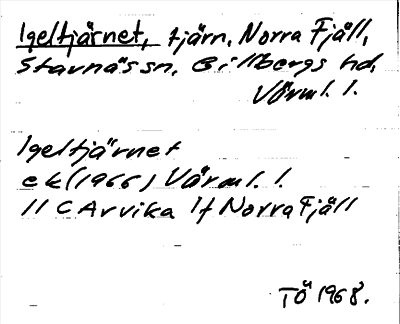 Igeltjärnet, tjärn, Norra Fjäll,
Stavnäs sn, Gillbergs hd,
Värml. l.
Igeltjärnet
ek (1966) Värml. l.
11 C Arvika 1f Norra Fjäll
TÖ 1968.